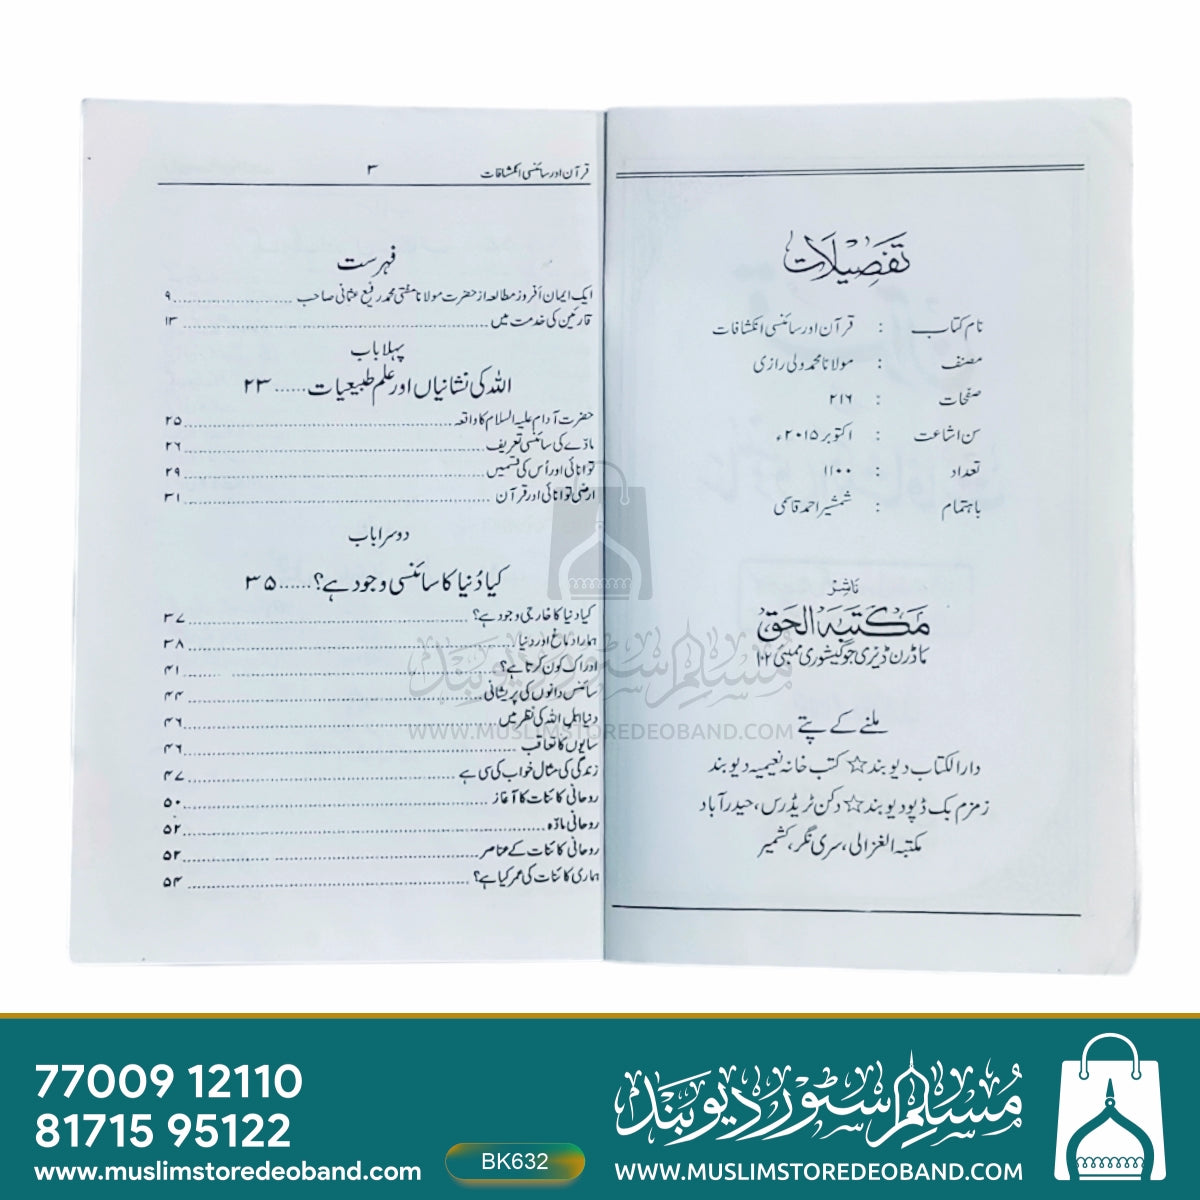 تفصیلات
نام کتاب : قرآن اور سائنسی انکشافات
مصنف : مولانا محمد ولی رازی
صفحات : ۲۱۶
سن اشاعت : اکتوبر ۲۰۱۵ء
تعداد : ۱۱۰۰
باہتمام : شمشیر احمد قاسمی
ناشر
مکتبہ الحق
ماڈرن ڈیری جوگیشوری ممبئی ۱۰۲
ملنے کے پتے
دارالکتاب دیوبند ☆ کتب خانہ نعیمیہ دیوبند
زمزم بک ڈپو دیوبند ☆ دکن ٹریڈرس، حیدرآباد
مکتبہ الغزالی، سری نگر، کشمیر
قرآن اور سائنسی انکشافات ۳
فہرست
ایک ایمان افروز مطالعہ از حضرت مولانا مفتی محمد رفیع عثمانی صاحب ۹
قارئین کی خدمت میں ۱۳
پہلا باب
اللہ کی نشانیاں اور علم طبیعیات ...... ۲۳
حضرت آدام علیہ السلام کا واقعہ ۲۵
مادّے کی سائنسی تعریف ۲۶
توانائی اور اُس کی قسمیں ۲۹
ارضی توانائی اور قرآن ۳۱
دوسرا باب
کیا دُنیا کا سائنسی وجود ہے؟ ...... ۳۵
کیا دنیا کا خارجی وجود ہے؟ ۳۷
ہمارا دماغ اور دنیا ۳۸
ادراک کون کرتا ہے؟ ۴۱
سائنس دانوں کی پریشانی ۴۴
دنیا اہل اللہ کی نظر میں ۴۶
سایوں کا تعاقب ۴۶
زندگی کی مثال خواب کی سی ہے ۴۷
روحانی کائنات کا آغاز ۵۰
روحانی مادّہ ۵۲
روحانی کائنات کے عناصر ۵۲
ہماری کائنات کی عمر کیا ہے؟ ۵۴
مسلم سٹور دیوبند
WWW.MUSLIMSTOREDEOBAND.COM
77009 12110
81715 95122
www.muslimstoredeoband.com
BK632
مسلم سٹور دیوبند
WWW.MUSLIMSTOREDEOBAND.COM